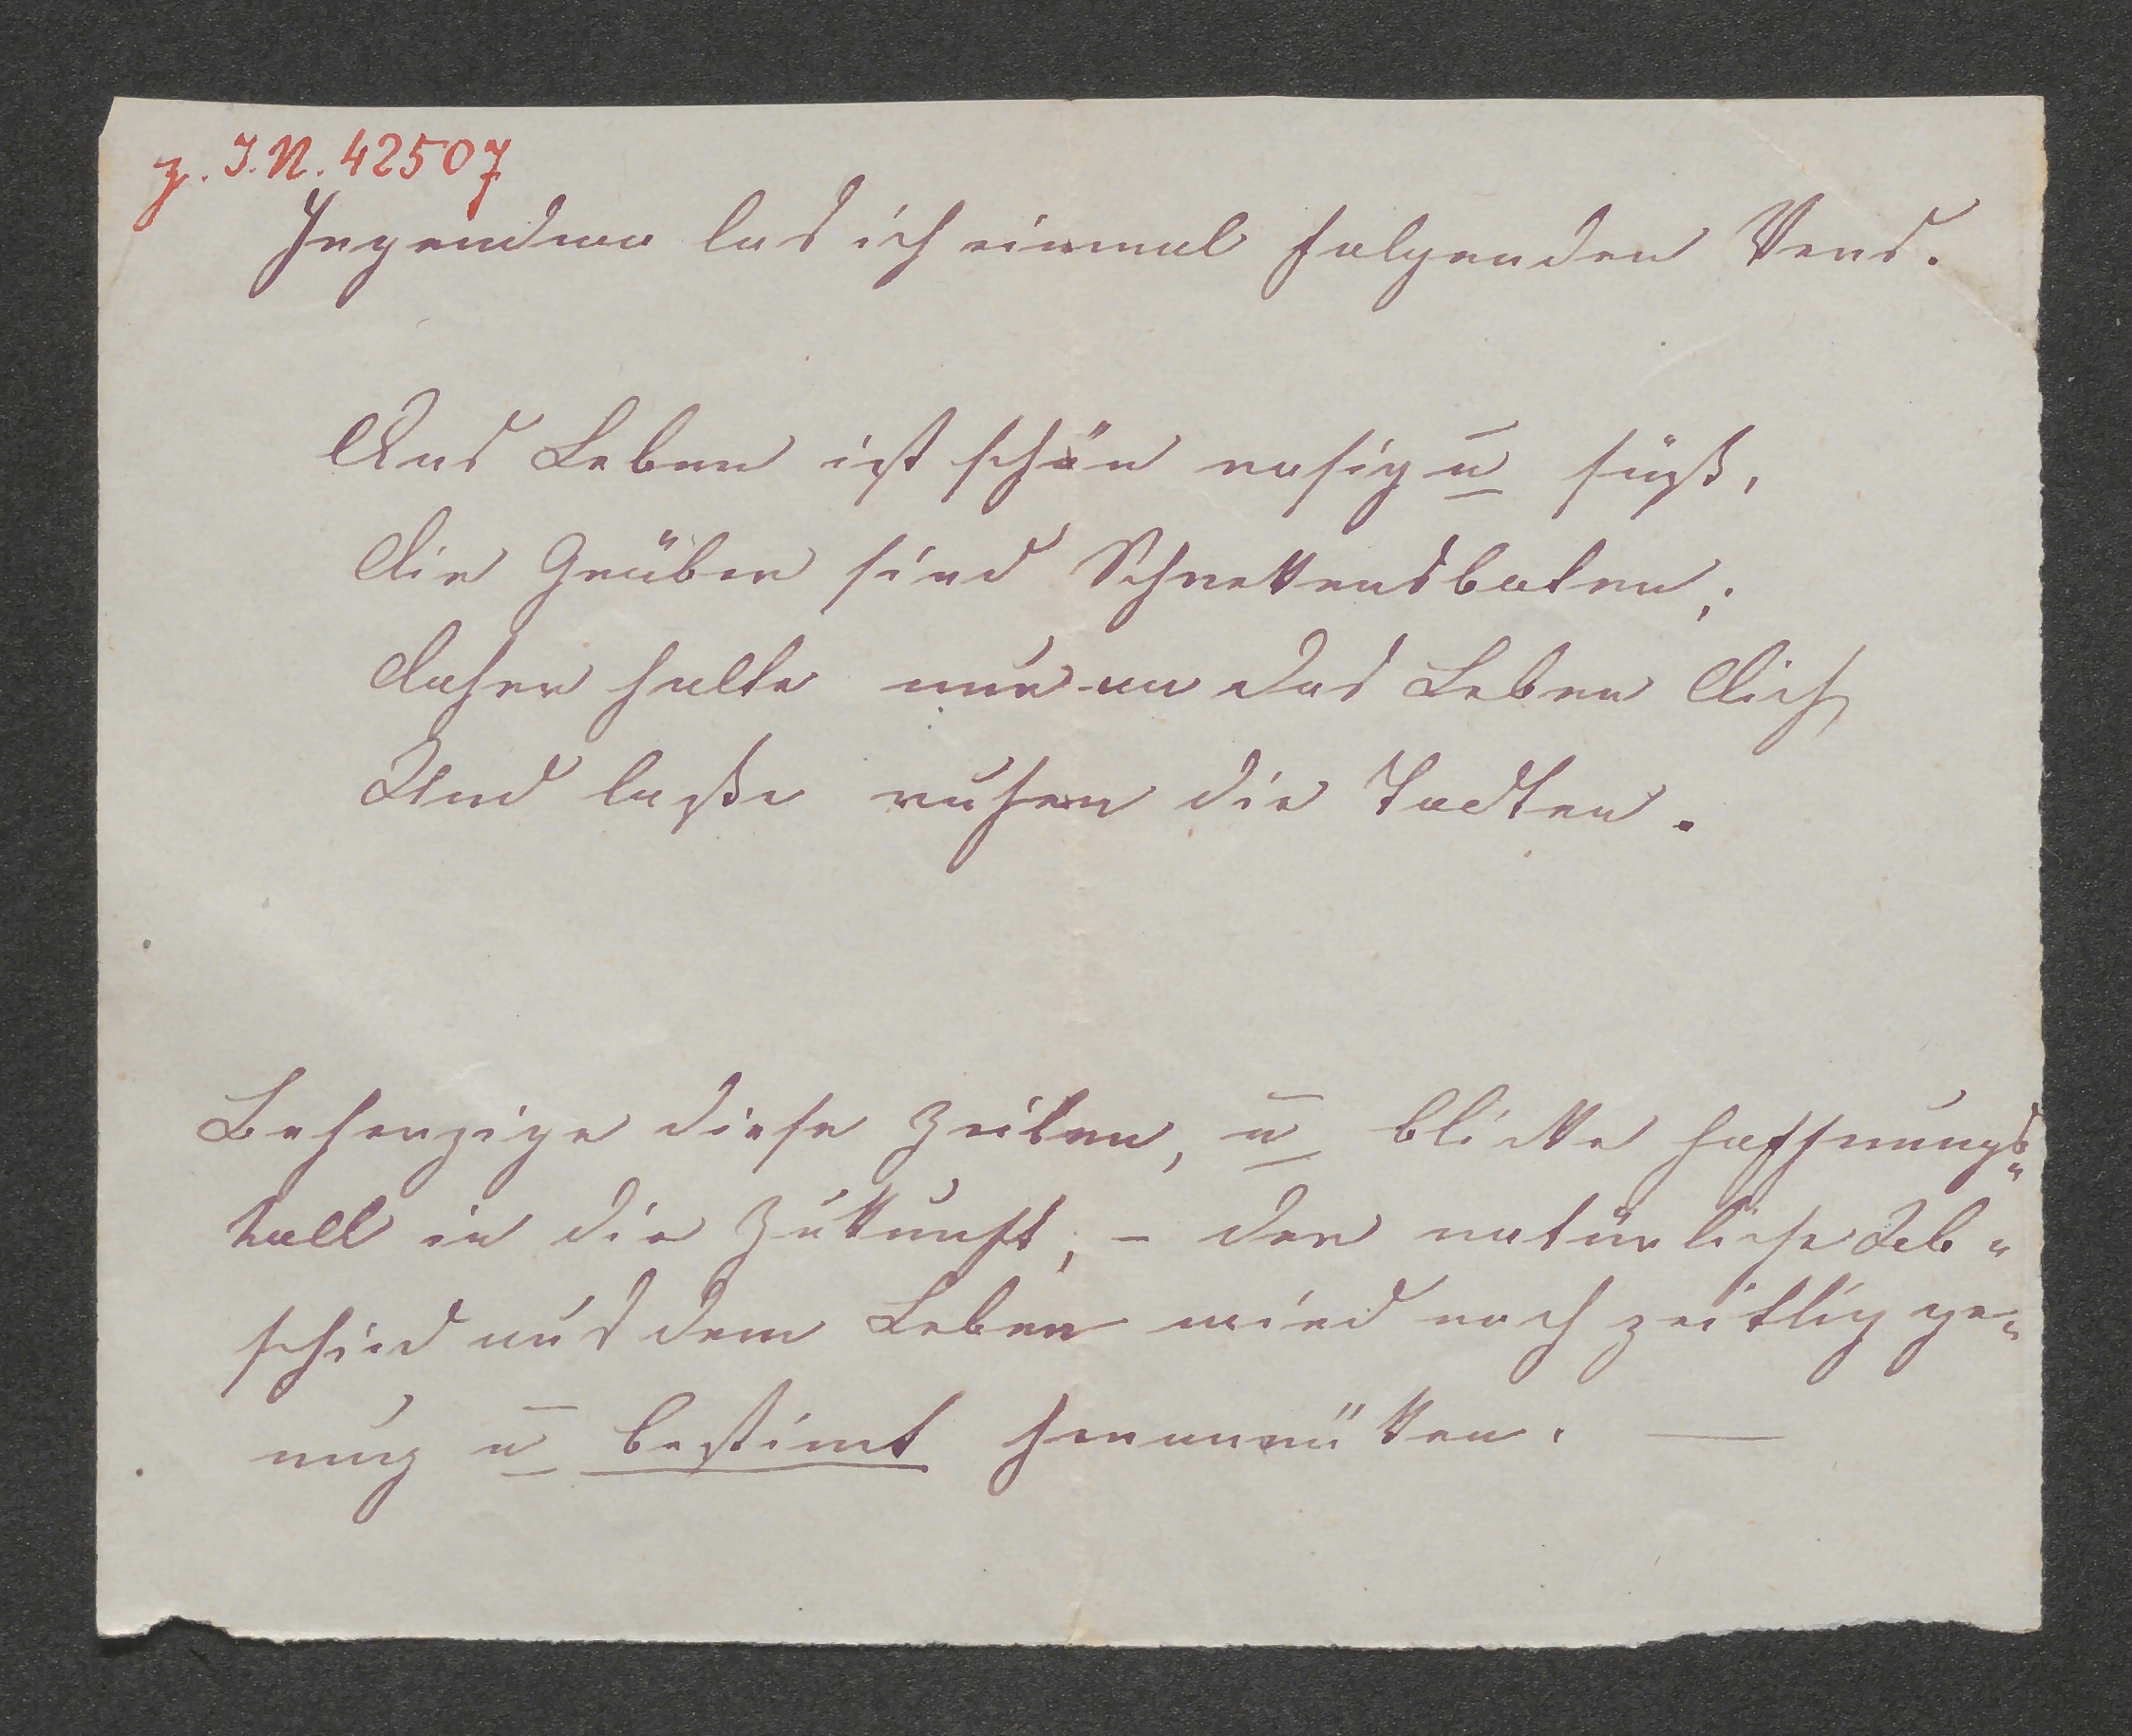 z. I.N. 42507
Irgendwo las ich einmal folgenden Vers.
Das Leben ist schön rosig u süß,
Die Gräber sind Schrekensboten;
Daher halte nur an das Leben Dich
Und laße ruhen die Todten.
Beherzige diese Zeilen, u blicke hoffnungs-
voll in die Zukunft, - der natürliche Ab-
schied aus dem Leben wird noch zeitlig ge-
nug u bestimt heranrücken. —